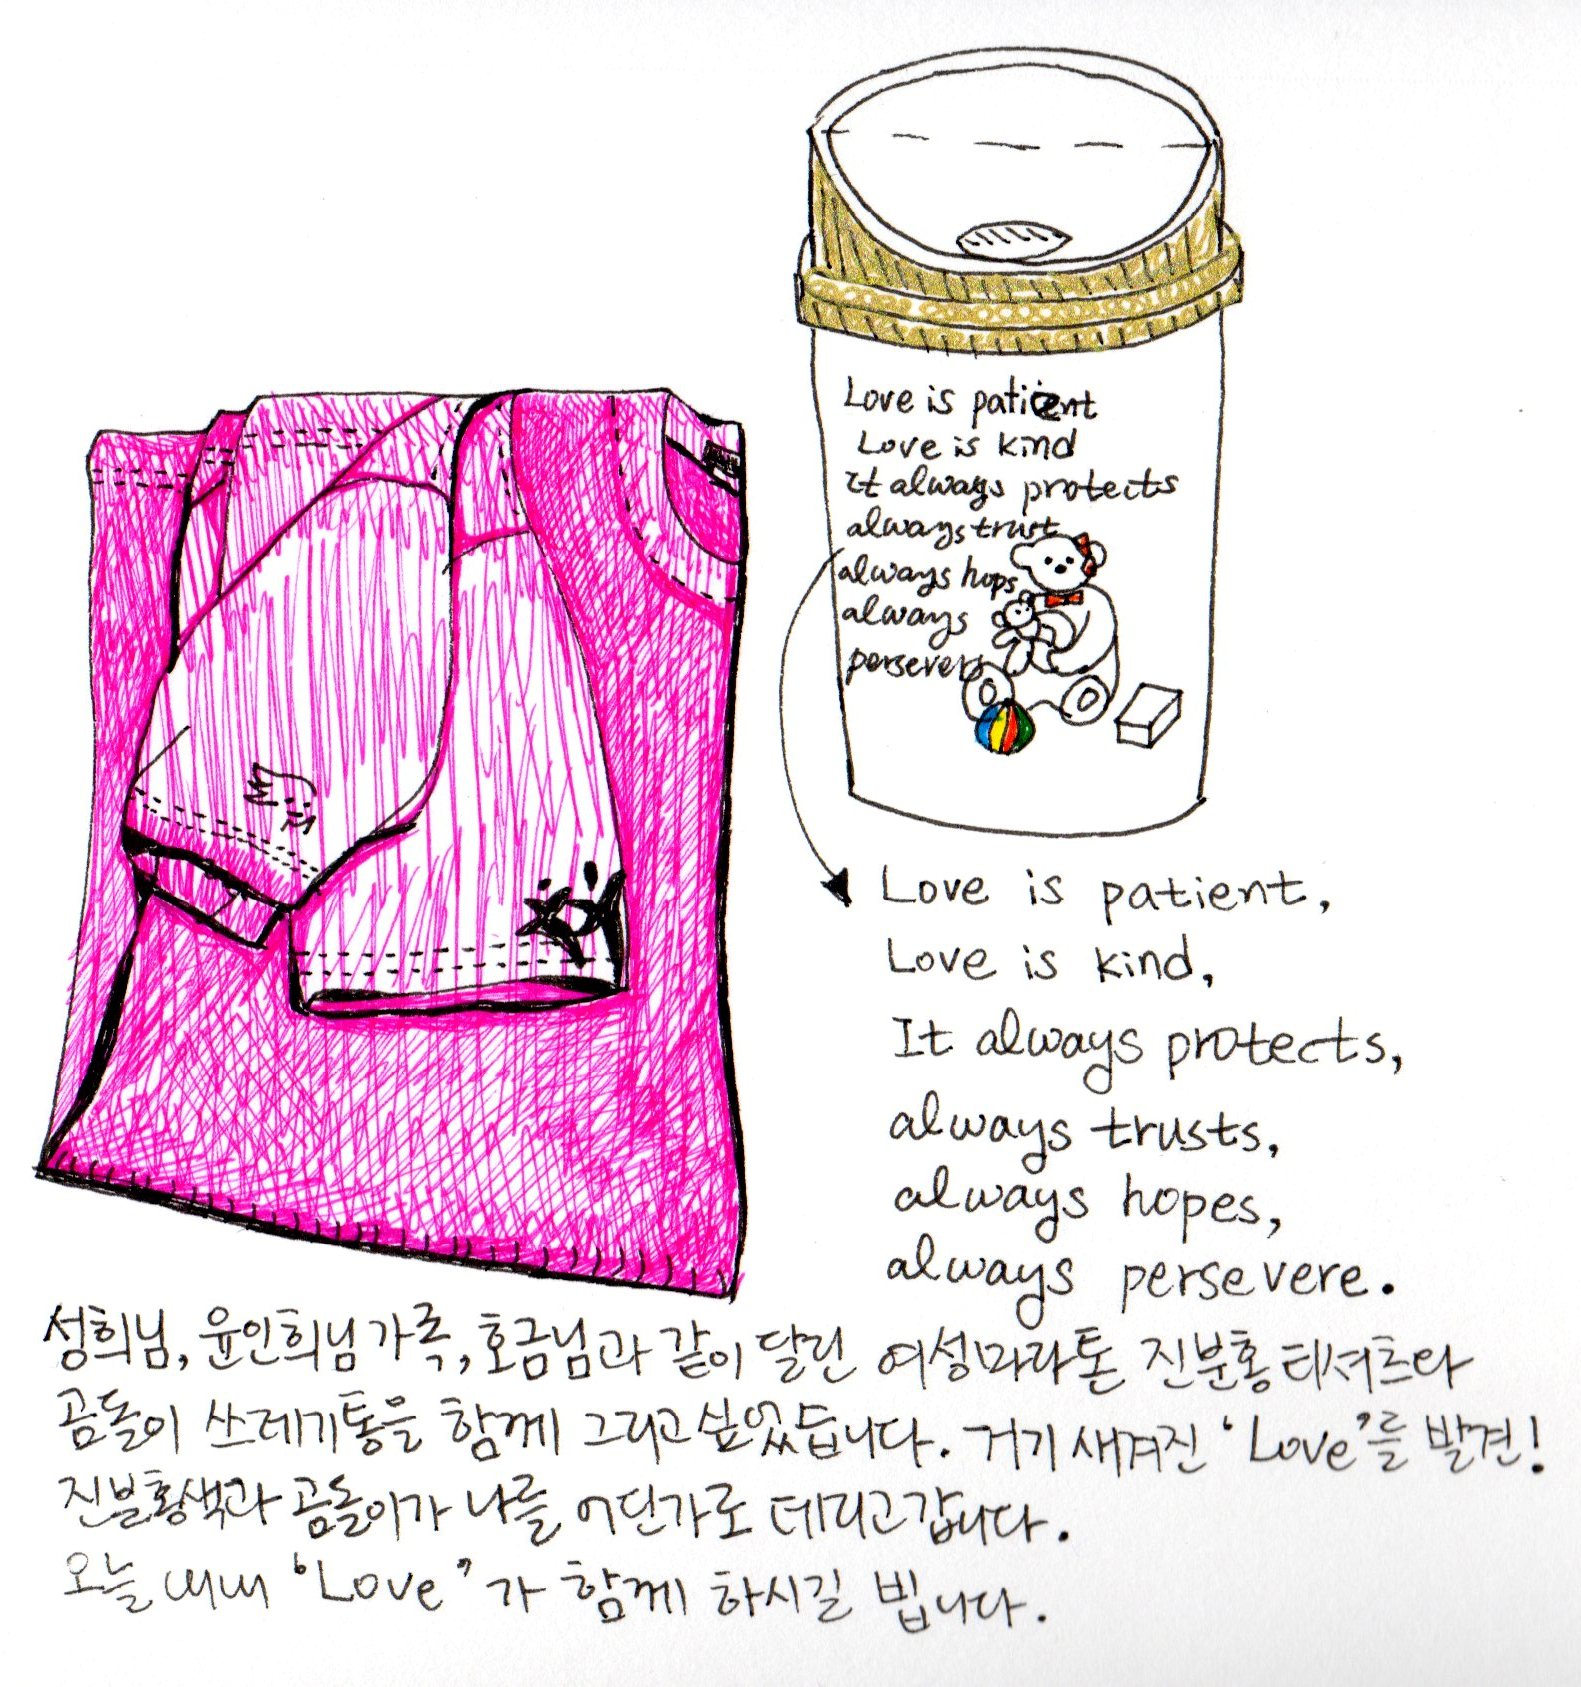 Love is patient
Love is kind
It always protects
always trust
always hops
always
persevers
Love is patient,
Love is kind,
It always protects,
always trusts,
always hopes,
always persevere.
성희님, 윤인희님 가족, 호금님과 같이 달린 여성마라톤 진분홍 티셔츠와
곰돌이 쓰레기통을 함께 그리고 싶었습니다. 거기 새겨진 'Love'를 발견!
진분홍색과 곰돌이가 나를 어딘가로 데리고 갑니다.
오늘 내내 'Love'가 함께 하시길 빕니다.